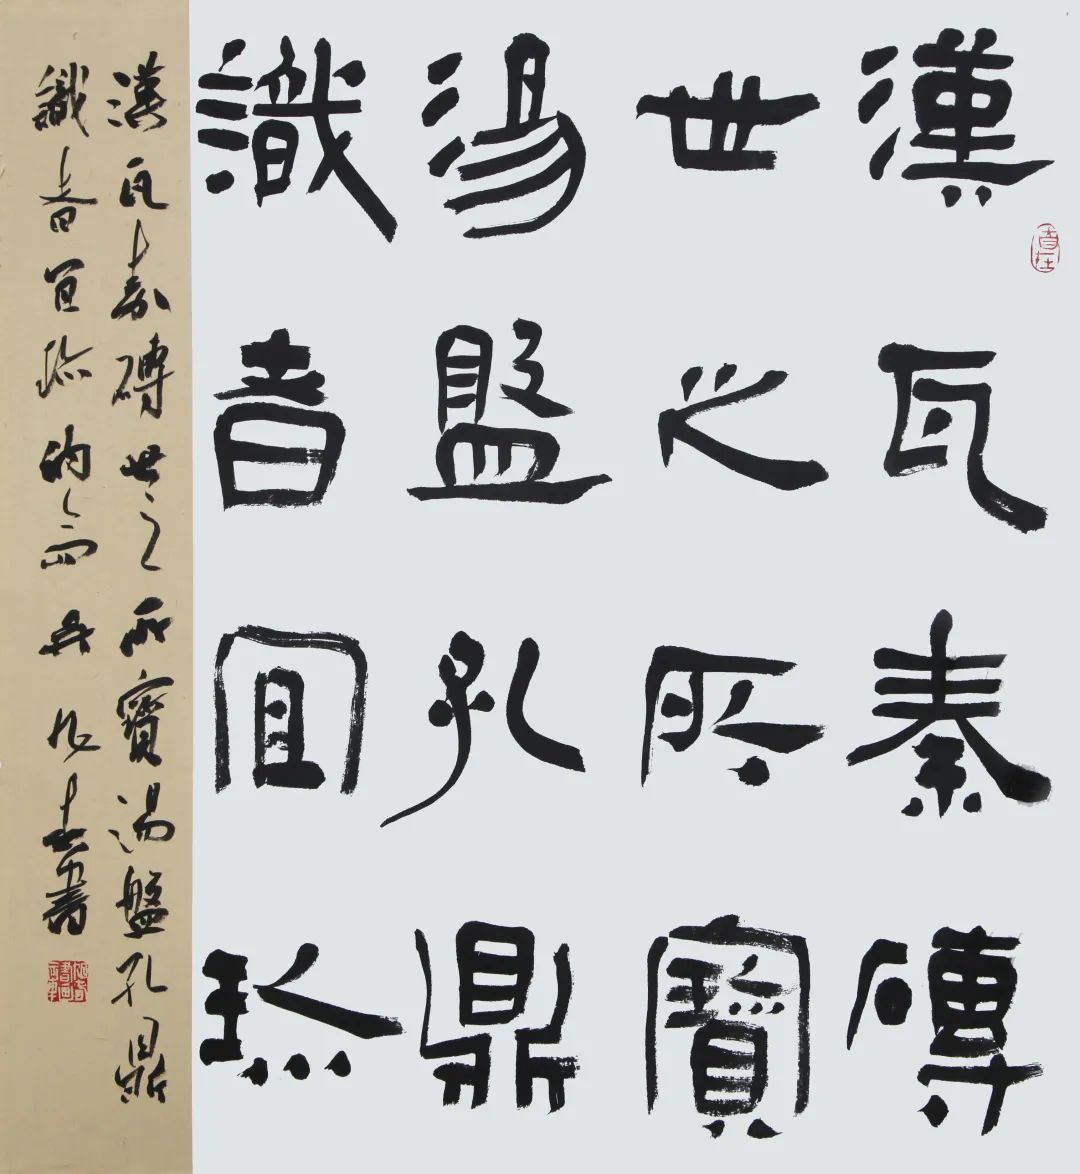 漢瓦秦磚
世之所寶
湯盤孔鼎
識者宜珍
漢瓦秦磚世之所寶湯盤孔鼎
識者宜珍書